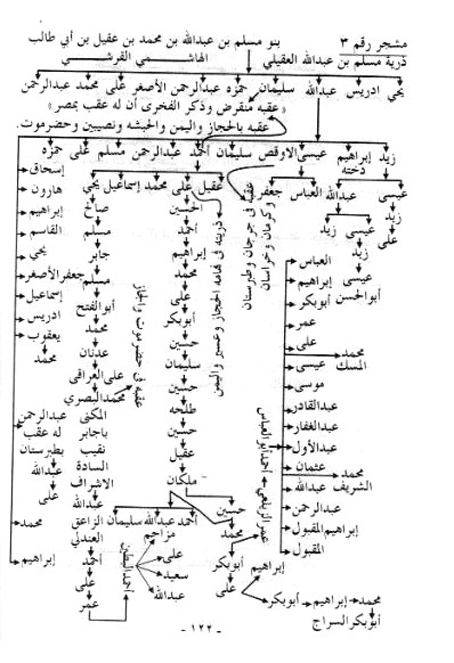 مشجر رقم ٣
بنو مسلم بن عبدالله بن محمد بن عقيل بن أبي طالب
ذرية مسلم بن عبدالله العقيلي الهاشمي القرشي
يحي ادريس عبدالله سليمان حمزه عبدالرحمن الأصغر على محمد عبدالرحمن
«عقبه منقرض وذكر الفخرى أن له عقب بمصر»
عقبه بالحجاز واليمن والحبشه ونصيبين وحضرموت.
زيد إبراهيم دخنه عيسى الاوقص سليمان أحمد عبدالرحمن مسلم على حمزه
عيسى عبدالله العباس جعفر
زيد عيسى زيد
على زيد
عيسى
أبوالحسن
عقبه فى جرجان وطبرستان
وكرمان وخراسان
عقيل على محمد إسماعيل يحي
ذريته فى تهامه الحجاز وعسير واليمن
الحسين
أحمد
إبراهيم
محمد
على
أبوبكر
حسين
سليمان
حسين
طلحه
حسين
عقيل
ملكان
صالح
مسلم
جابر
مسلم
أبوالفتح
محمد
عدنان
على العراقى
محمد البصري
عقبه فى حضرموت والحجاز
المكنى
باجابر
نقيب
السادة
الاشراف
عبدالله
إسحاق
هارون
إبراهيم
القاسم
يحي
جعفر الأصغر
إسماعيل
ادريس
يعقوب
محمد
عبدالرحمن
له عقب
بطبرستان
عبدالله
على
محمد
إبراهيم
العباس
إبراهيم
أبوبكر
عمر
على
محمد المسك
عيسى
موسى
عبدالقادر
عبدالغفار
عبدالأول
عثمان
محمد الشريف
عبدالله
عبدالرحمن
إبراهيم المقبول
المقبول
أحمد أبو العباس
عمر الزيلعي
حسين أحمد عبدالله سليمان الزاعق
محمد مزاحم العندلي
على
سعيد
عبدالله
أحمد
على
عمر
إبراهيم أبوبكر
على
محمد إبراهيم أبوبكر
أبوبكر السراج
- ١٢٢ -